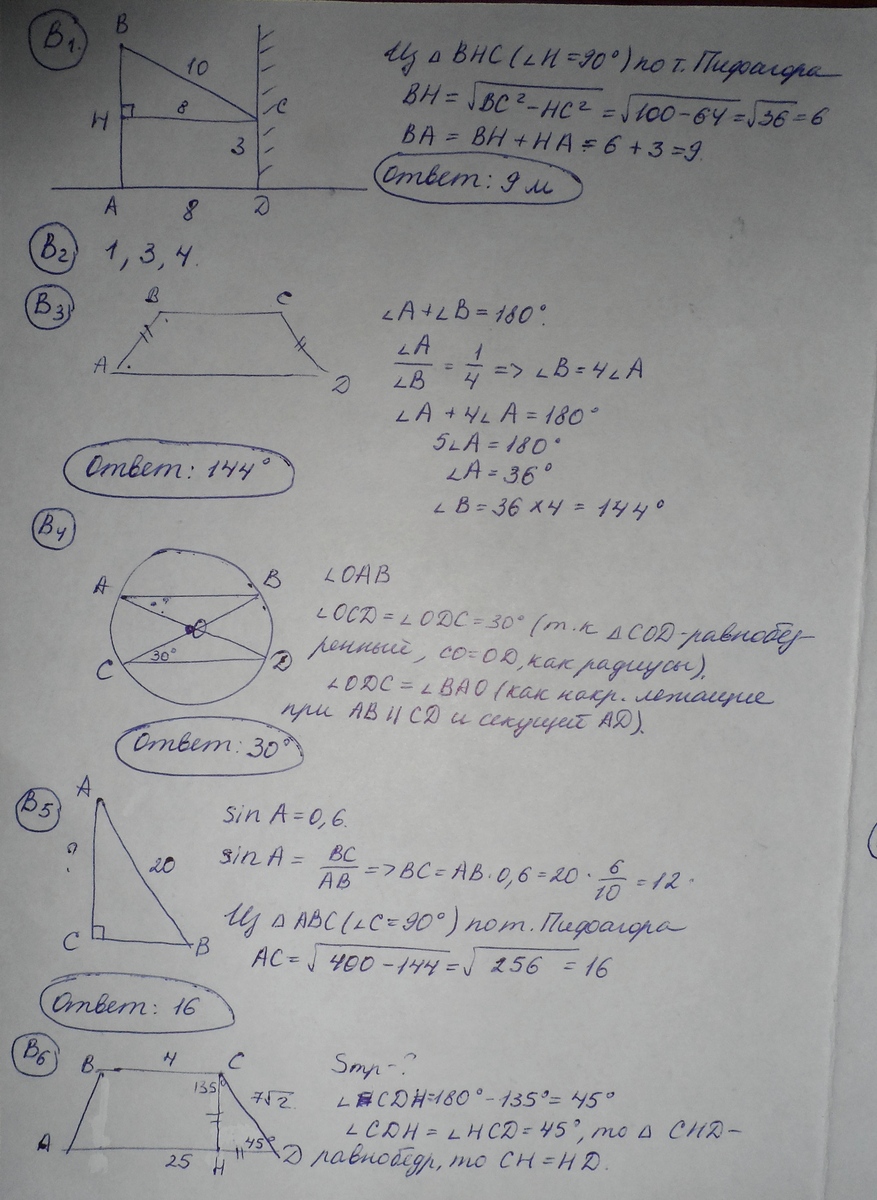 B1.
B
10
H
8
C
3
A
8
D
Из △ BHC (∠H=90°) по т. Пифагора
BH = √BC²-HC² = √100-64 = √36 = 6
BA = BH + HA = 6 + 3 = 9.
Ответ: 9 м
B2
1, 3, 4.
B3
B
C
A
D
∠A+∠B=180°.
∠A/∠B = 1/4 => ∠B=4∠A
∠A + 4∠A = 180°
5∠A = 180°
∠A = 36°
∠B = 36×4 = 144°
Ответ: 144°
B4
A
B
O
C
30°
D
∠OAB
∠OCD=∠ODC=30° (т.к △COD-равнобед-
ренный, CO=OD, как радиусы).
∠ODC = ∠BAO (как накр. лежащие
при AB || CD и секущей AD).
Ответ: 30°
B5
A
?
20
C
B
sin A = 0,6.
sin A = BC/AB => BC = AB·0,6 = 20 · 6/10 = 12.
Из △ ABC (∠C=90°) по т. Пифагора
AC = √400-144 = √256 = 16
Ответ: 16
B6
B
4
C
135°
7√2
A
25
H
45°
D
Sтр-?
∠CDH=180°-135°=45°
∠CDH = ∠HCD=45°, то △ CHD-
равнобедр, то CH = HD.